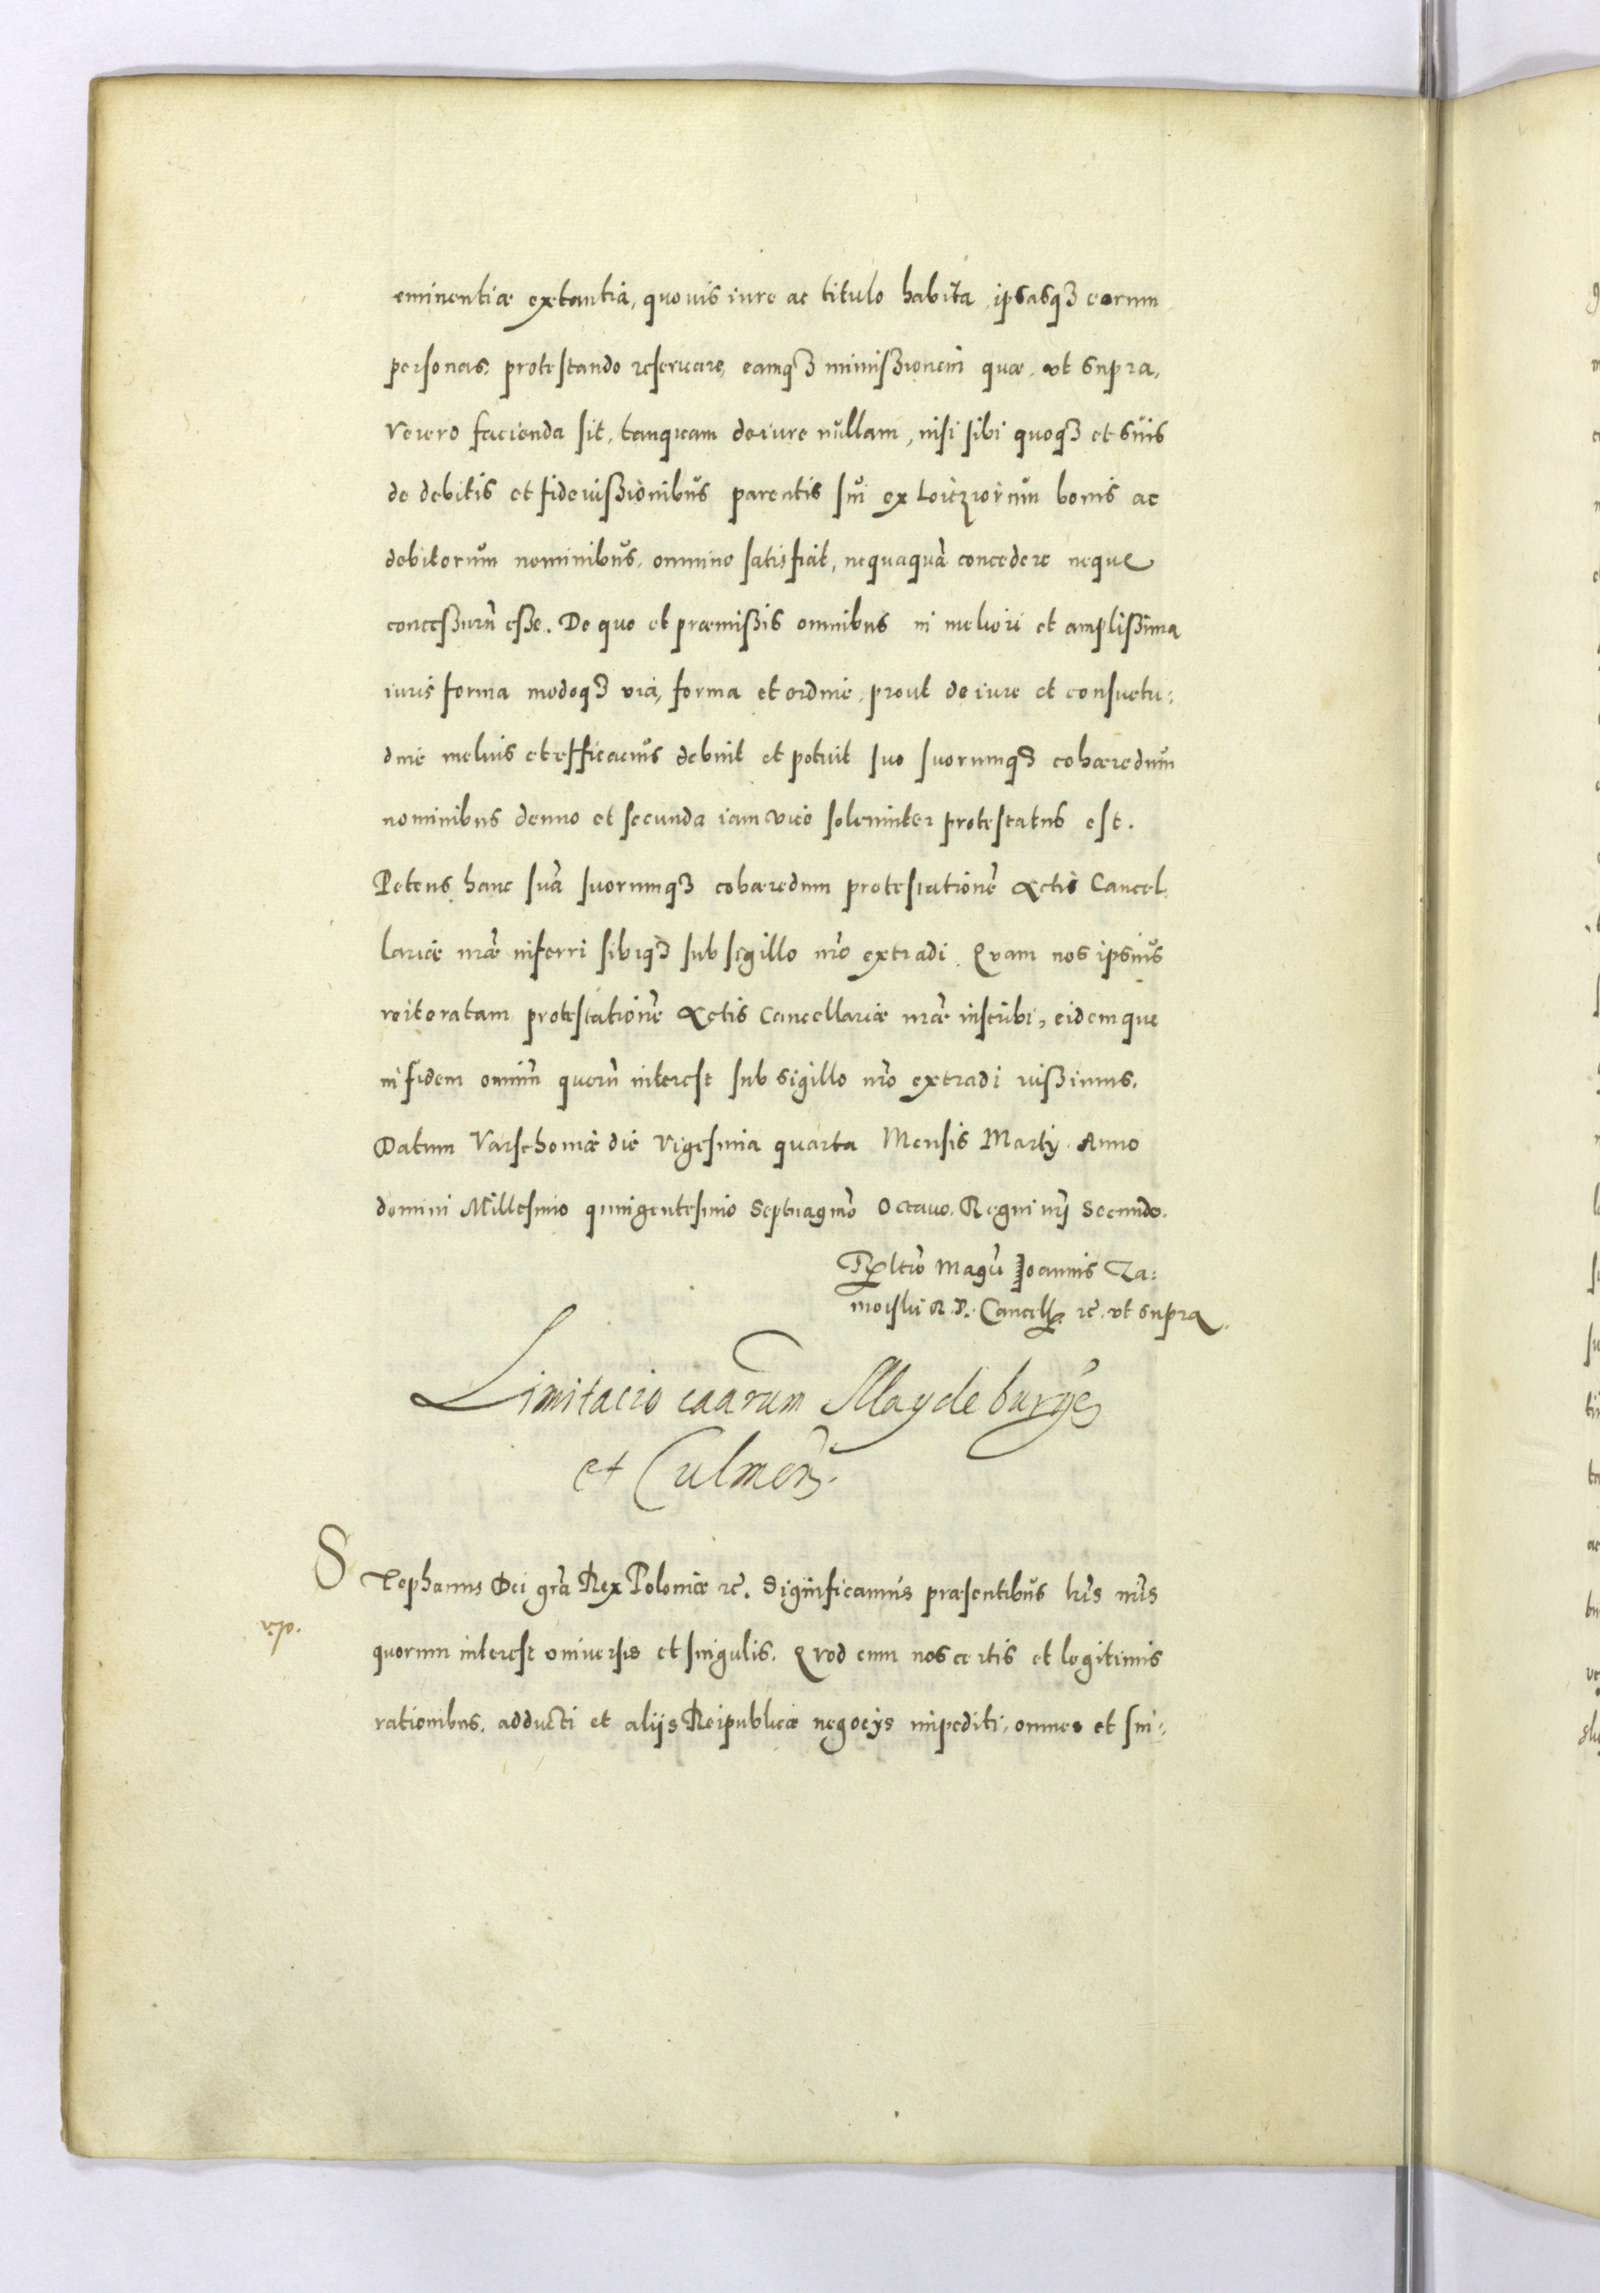 eminentiæ extantia, quouis iure ac titulo habita, ipsasqȝ eorum
personas, protestando reseruare, eamqȝ immissionem quæ, vt supra,
Veiero facienda sit, tanquam de iure nullam, nisi sibi quoqȝ et suis
de debitis et fideiussionibus parentis sui ex Loitziorum bonis ac
debitorum nominibus, omnino satisfiat, nequaquã concedere neque
concessurũ esse. De quo et præmissis omnibus in meliori et amplissima
iuris forma modoqȝ via, forma et ordine, prout de iure et consuetu:
dine melius et efficacius debuit et potuit suo suorumqȝ cohæredum
nominibus denuo et secunda iam vice solenniter protestatus est.
Petens hanc suã suorumqȝ cohæredum protestationẽ Actis Cancel
lariæ nræ inferri sibiqȝ sub sigillo nro extradi. Quam nos ipsius
reiteratam protestationẽ Actis Cancellariæ nræ inscribi, eidemque
in fidem omniũ quorũ interest sub sigillo nro extradi iussimus.
Datum Varschouiæ die Vigesima quarta Mensis Martij Anno
domini Millesimo quingentesimo Septuagmo Octauo. Regni nri Secundo.
Ioannis Za:
moiski R. P. Cancell. rc. vt supra
Limitacio caarum Maydeburgẽ
et Culmeñ.
Stephanus Dei gra Rex Poloniæ rc. Significamus præsentibus lris nris
quorum interest vniuersis et singulis. Quod cum nos certis et legitimis
rationibus, adducti et alijs Reipublicæ negocijs impediti, omnes et sin: